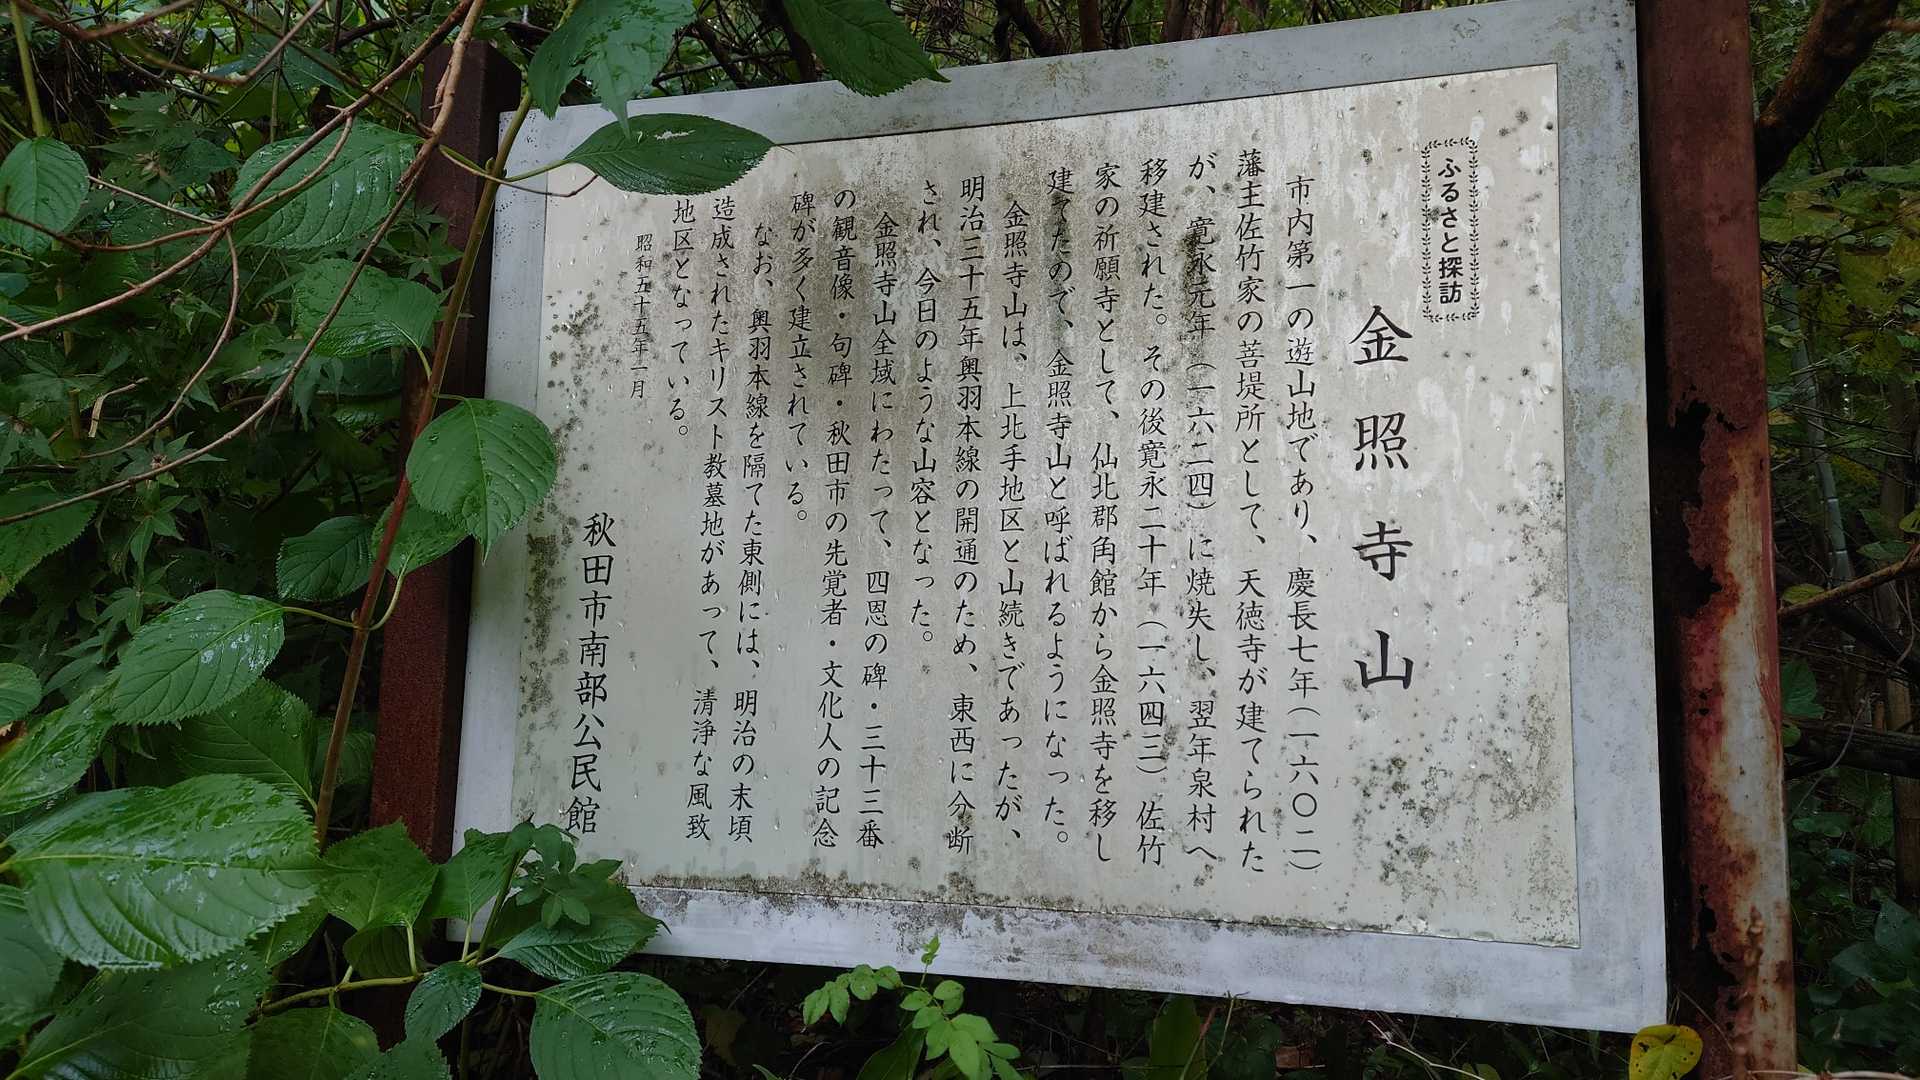 ふるさと探訪
金照寺山
市内第一の遊山地であり、慶長七年（一六〇二）
藩主佐竹家の菩提所として、天徳寺が建てられた
が、寛永元年（一六二四）に焼失し、翌年泉村へ
移建された。その後寛永二十年（一六四三）佐竹
家の祈願寺として、仙北郡角館から金照寺を移し
建てたので、金照寺山と呼ばれるようになった。
金照寺山は、上北手地区と山続きであったが、
明治三十五年奥羽本線の開通のため、東西に分断
され、今日のような山容となった。
金照寺山全域にわたって、四恩の碑・三十三番
の観音像・句碑・秋田市の先覚者・文化人の記念
碑が多く建立されている。
なお、奥羽本線を隔てた東側には、明治の末頃
造成されたキリスト教墓地があって、清浄な風致
地区となっている。
昭和五十五年一月
秋田市南部公民館